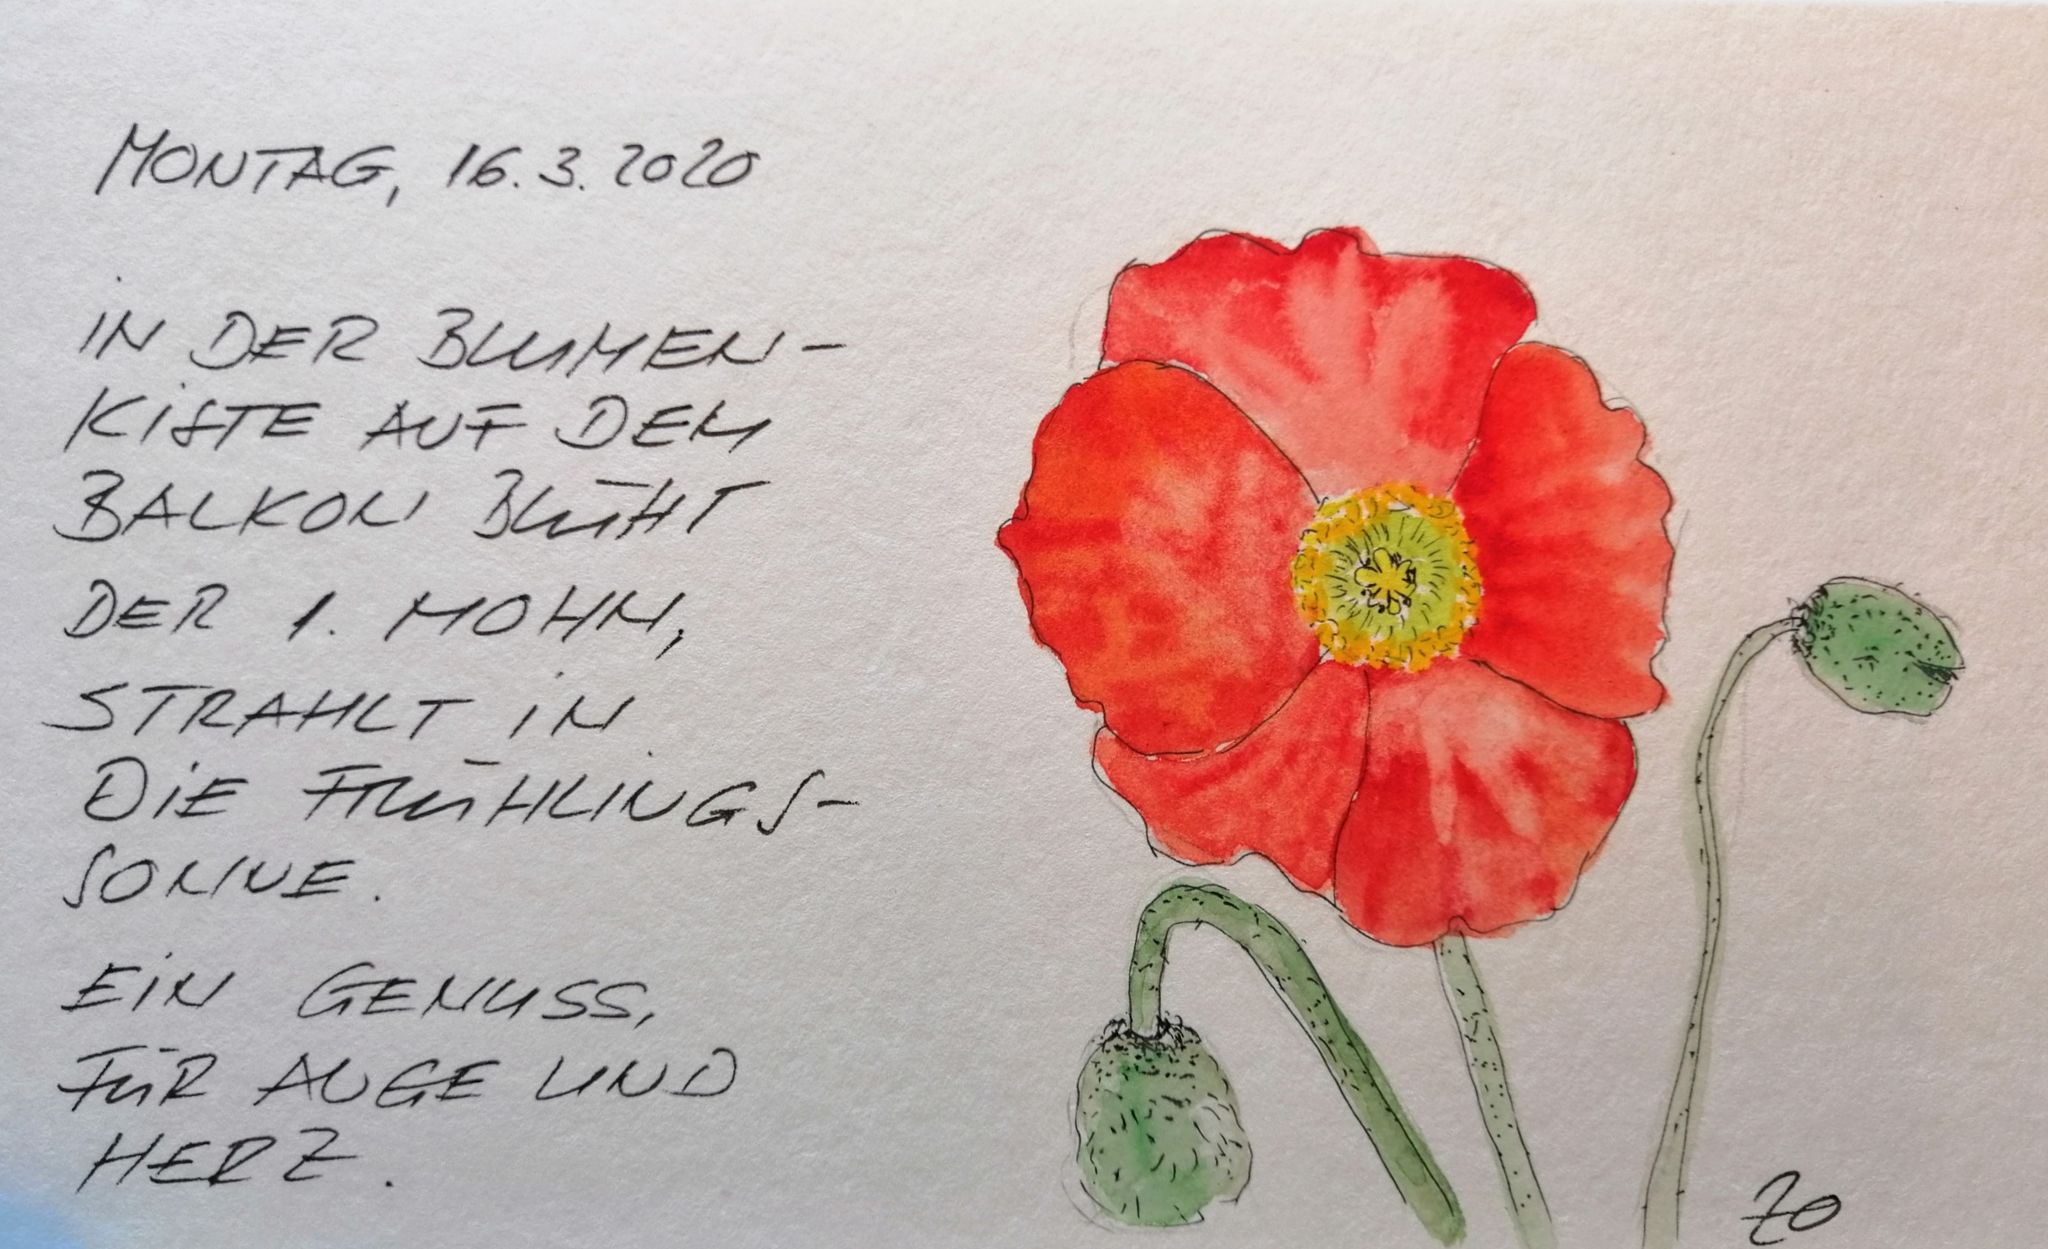 MONTAG, 16.3.2020
IN DER BLUMEN-
KISTE AUF DEM
BALKON BLÜHT
DER 1. MOHN,
STRAHLT IN
DIE FRÜHLINGS-
SONNE.
EIN GENUSS,
FÜR AUGE UND
HERZ.